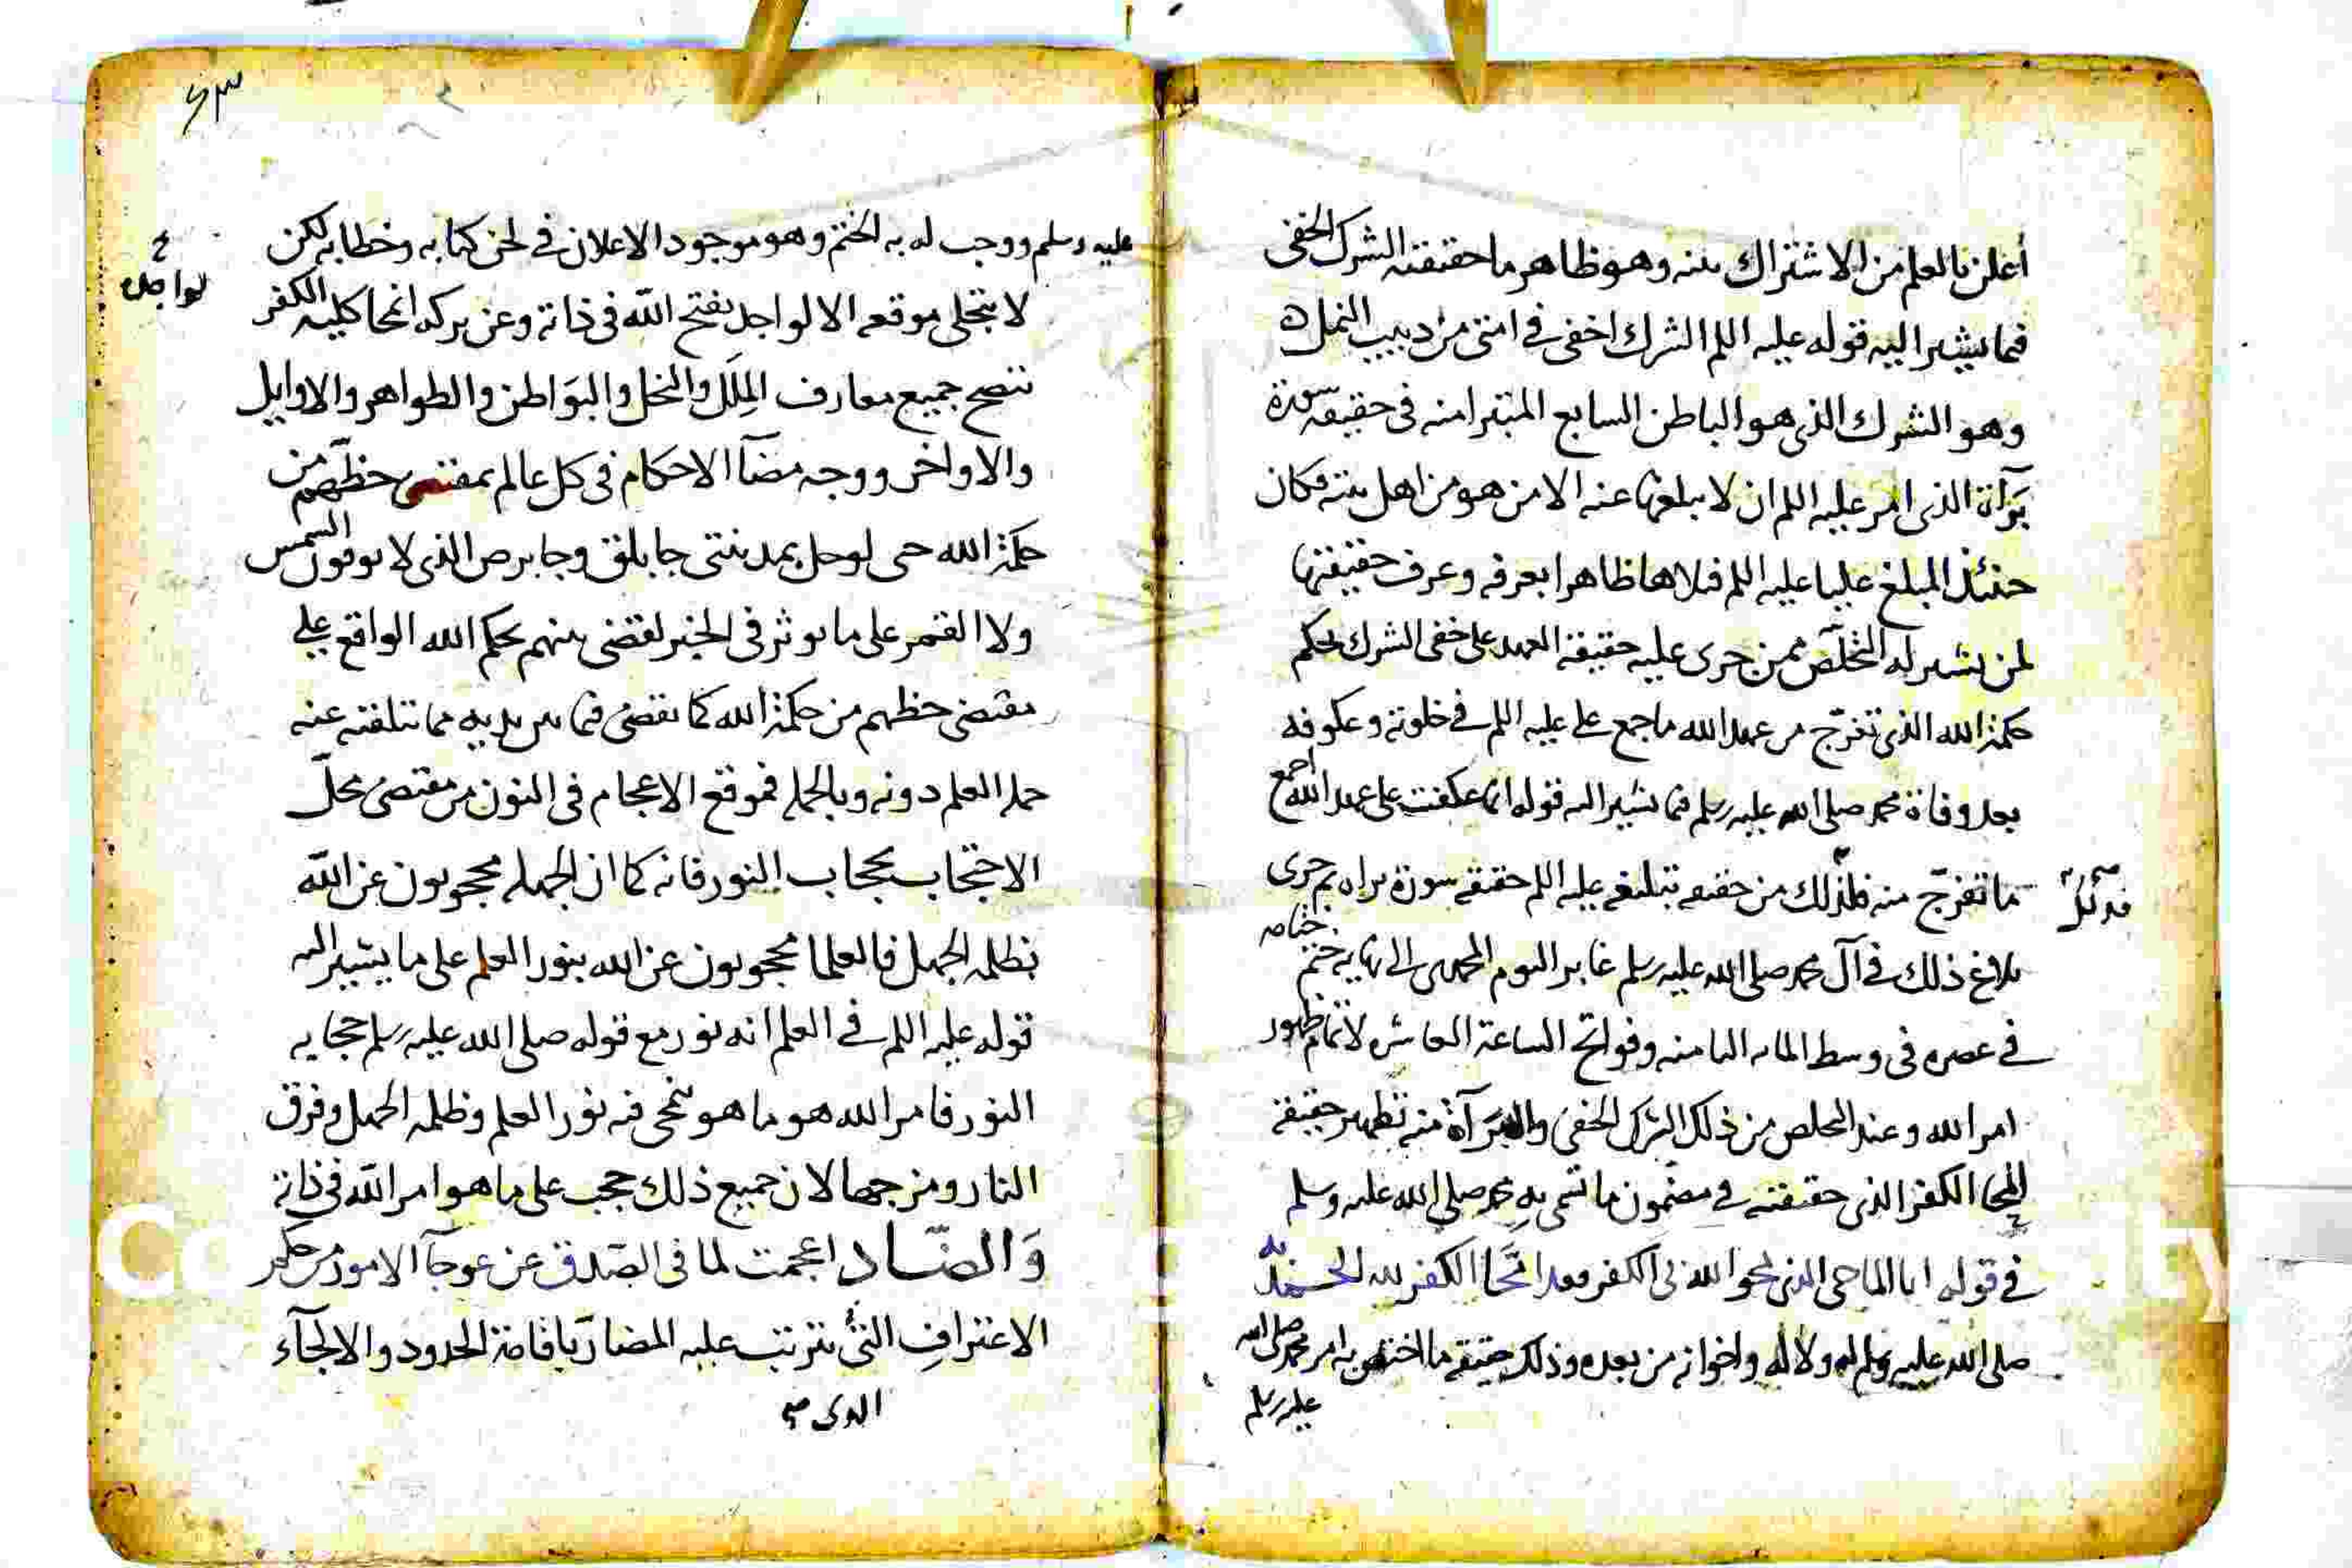 أعلن بالعلم من الاشتراك بينه وهو ظاهر ما حقيقته الشرك الخفى
فما يشير اليه قوله عليه السلم الشرك اخفى فى امتى من دبيب النمل
وهو الشرك الذى هو الباطن السابع المتبرا منه فى حقيقة سورة
برآة الذى امر عليه السلم ان لا يبلغها عنه الا من هو من اهل بيته فكان
حينئذ المبلغ عليا عليه السلم فتلاها ظاهرا بعرفه وعرف حقيقتها
لمن يشير له التخلص ممن جرى عليه حقيقة العهد على خفى الشرك بحكم
حكمة الله الذى تخرج من عهد الله ما جمع على عليه السلم فى خلوته وعكوفه
بعد وفاة محمد صلى الله عليه وسلم فما يشير اليه قوله انما عكفت على عهد الله اجمع
ما تفرج منه فلذلك من حقيقه تبليغه عليه السلم حقيقه سورة براه ثم جرى
بلاغ ذلك فى آل محمد صلى الله عليه وسلم غابر اليوم المحمدى الى نهايه ختم
ختامه
فى عصره فى وسط المايه الثامنه وفواتح الساعة العاشره لاتمام ظهور
امر الله وعند التخلص من ذلك الشرك الخفى والبرآة منه تظهر حقيقة
الكفر الذى حقيقته فى مضمون ما تسمى به محمد صلى الله عليه وسلم
فى قوله انا الماحى الذى يمحو الله بى الكفر فعند انمحا الكفر لله
صلى الله عليه وسلم له ولآله واخوانه من بعده وذلك حقيقه ما اختص به امر محمد صلى الله
عليه وسلم
٦٣
عليه وسلم ووجب له به الختم وهو موجود الاعلان فى لحن كتابه وخطابه لكن
لا يتجلى موقعه الا لواجد بفتح الله فى ذاته وعن بركه انمحا كليه الكفر
لواجده
تتضح جميع معارف الملل والنحل والبواطن والظواهر والاوايل
والاواخر ووجه مضآ الاحكام فى كل عالم بمقتضى حظهم من
حكمة الله حتى لو حل بمدينتى جابلق وجابرص الذى لا يرون الشمس
ولا القمر على ما يوثر فى الخبر لقضى بينهم بحكم الله الواقع على
مقتضى حظهم من حكمة الله كما يقضى فيما بين يديه مما تتلقنه عنه
حملة العلم دونه وبالجملة فموقع الاعجام فى النون من مقتضى محل
الاحتجاب بحجاب النور فانه كما ان الجهله محجوبون عن الله
بظلمه الجهل فالعلما محجوبون عن الله بنور العلم على ما يشير اليه
قوله عليه السلم فى العلم انه نور مع قوله صلى الله عليه وسلم حجابه
النور فامر الله هو ما هو ينمحى فيه نور العلم وظلمه الجهل وفرق
النار ومزجها لان جميع ذلك حجب على ما هو امر الله فى ذاته
والضاد اعجمت لما فى الصدق عن عوجآ الامور من حكم
الاعتراف الذى يترتب عليه المضار باقامة الحدود والالجآء
الذى